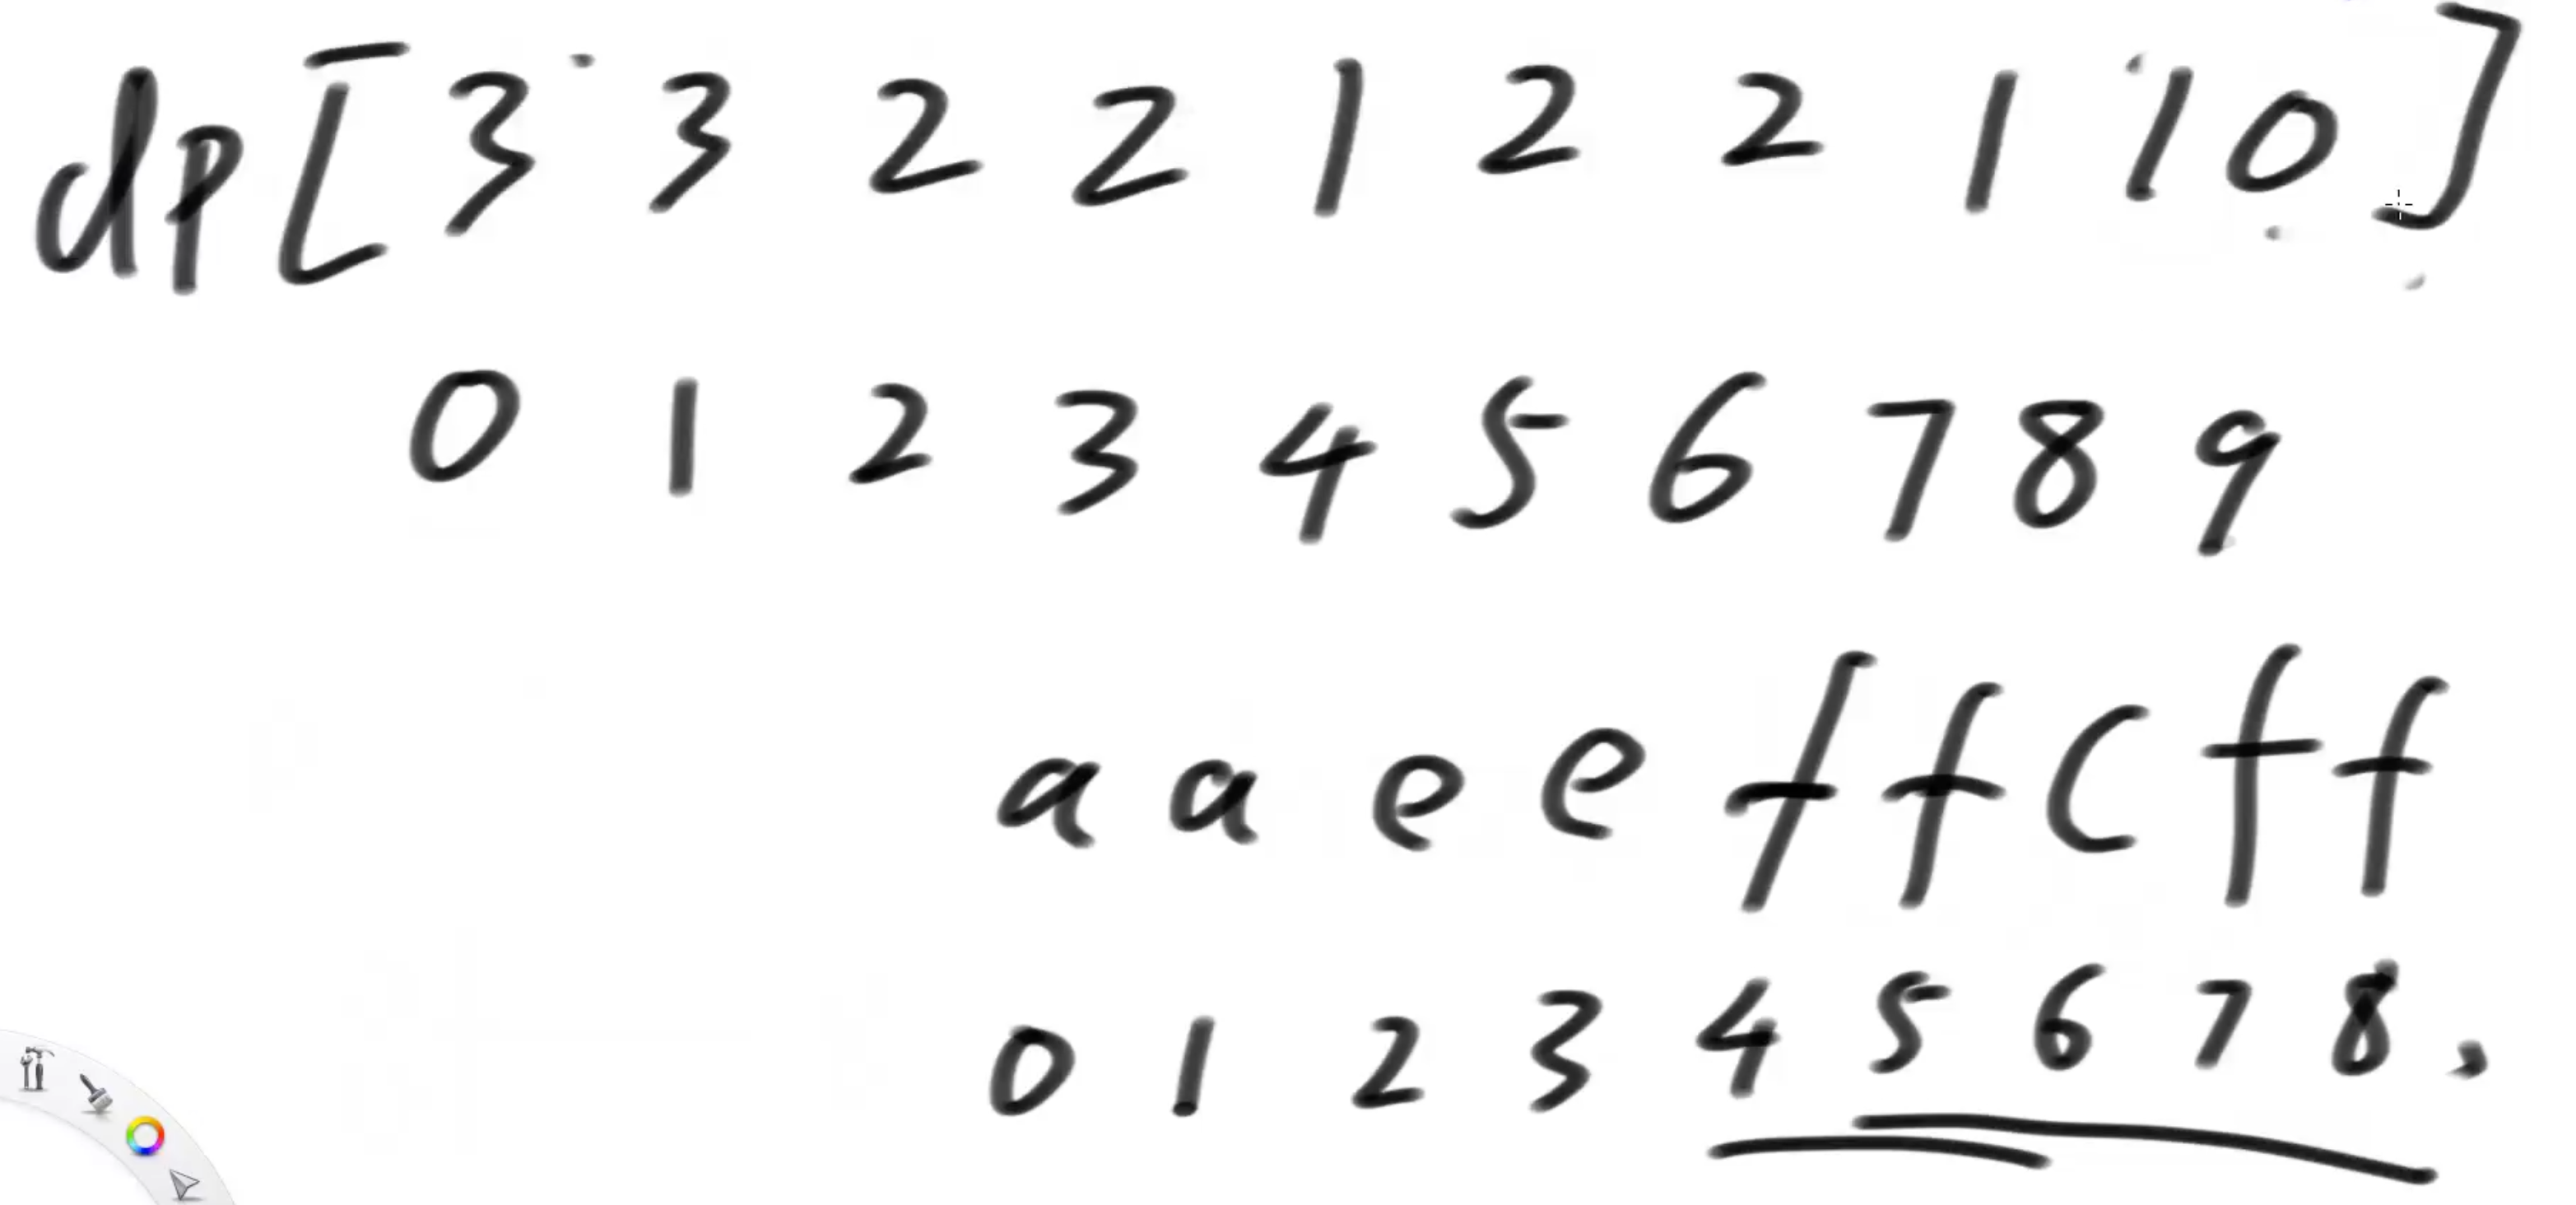 dp[3 3 2 2 1 2 2 1 1 0]
0 1 2 3 4 5 6 7 8 9
a a e e f f c f f
0 1 2 3 4 5 6 7 8,